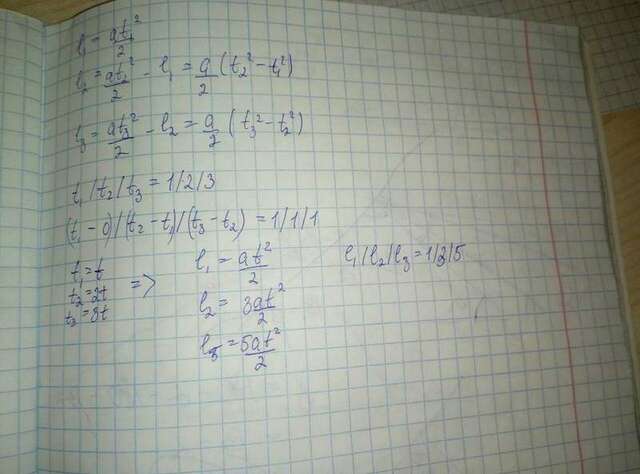 l₁ = at₁²/2
l₂ = at₂²/2 - l₁ = a/2 (t₂² - t₁²)
l₃ = at₃²/2 - l₂ = a/2 (t₃² - t₂²)
t₁/t₂/t₃ = 1/2/3
(t₁ - 0)/(t₂ - t₁)/(t₃ - t₂) = 1/1/1
t₁ = t
t₂ = 2t
t₃ = 3t
=>
l₁ = at²/2
l₂ = 3at²/2
l₃ = 5at²/2
l₁/l₂/l₃ = 1/3/5